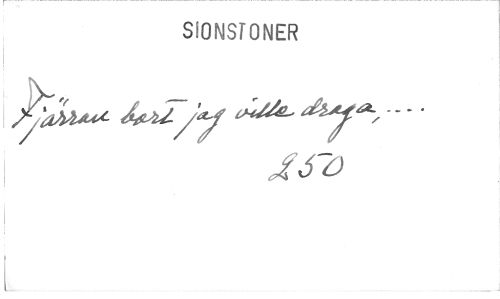 SIONSTONER
Fjärran bort jag ville draga,....
250